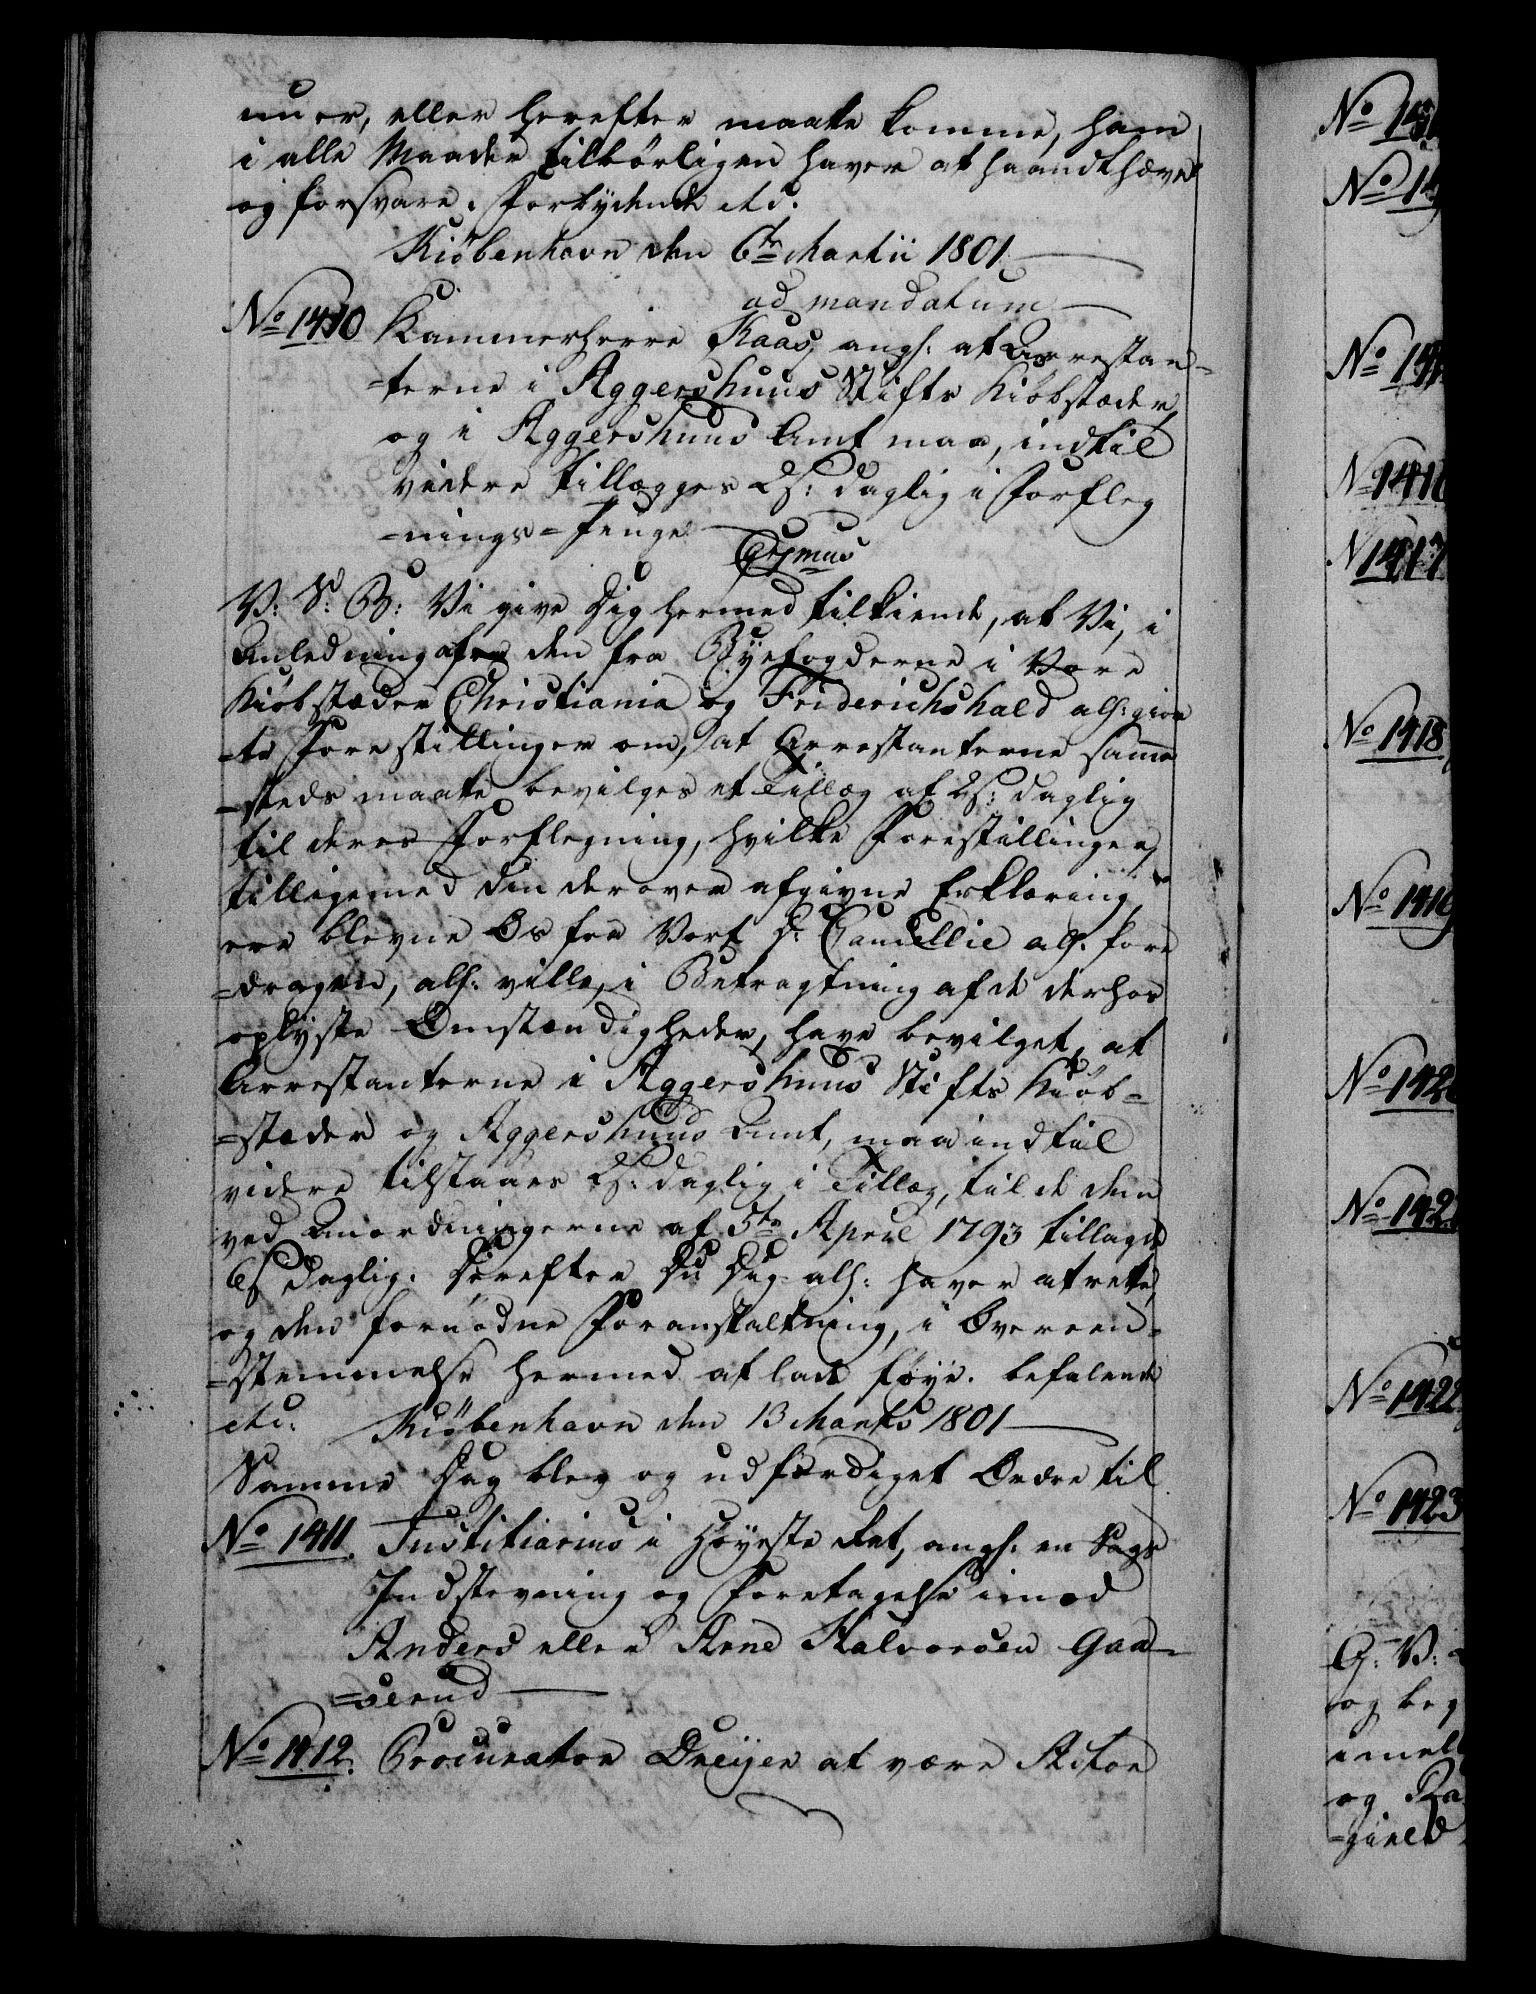 nu er, eller herefter maatte komme, ham
i alle Maader tilbørligen haver at haandthæve
og forsvare. Forbydende etc.
Kiøbenhavn den 6te Martii 1801.
ad mandatum
No 1410 Kammerherre Kaas, angl. at Arrestan-
=terne i Aggershuus Stifts Kiøbstæder,
og i Aggershuus Amt maa, indtil
videre tillægges 2s: daglig i Forfleg
=nings=Penge
V: S: B: Vi give Dig hermed tilkiende, at Vi, i
Anledning af den fra Byefogderne i Vore
Kiøbstæder Christiania og Friderichshald alh: gior
=te Forestillinger om, at Arrestanterne samme
=steds maatte bevilges et Tillæg af 2s: daglig
til deres Forflegning, hvilke Forestillinger,
tilligemed Din derover afgivne Erklæring,
ere blevne Os fra Vort D: Cancellie alh. fore
=dragen, alh: ville, i Betragtning af de derhos
oplyste Omstændigheder, have bevilget, at
Arrestanterne i Aggershuus Stifts Kiøb-
=stæder og Aggershuus Amt, maa indtil
videre tilstaaes 2s: daglig i Tillæg, til de dem
ved Anordningerne af 5te April 1793 tillagde
6s daglig. Derefter Du Dig alh: haver at rette,
og den fornødne Foranstaltning, i Overeen-
=stemmelse hermed at lade føye. Befalende
etc. Kiøbenhavn den 13 Marts 1801
Samme Dag blev og udfærdiget Ordre til
No 1411. Justitiarius i Høyeste Ret, angl. en Sags
Indstevning og Foretagelse imod
Anders eller Arne Halvorsen Gaa-
=serud
No 1412. Procurator Dreijer at være Actor
No 1416
No 1417
No 1418
No 1419
No 1420
No 142
No 1422
No 1423
G: V:
og beg
imel
og Ra